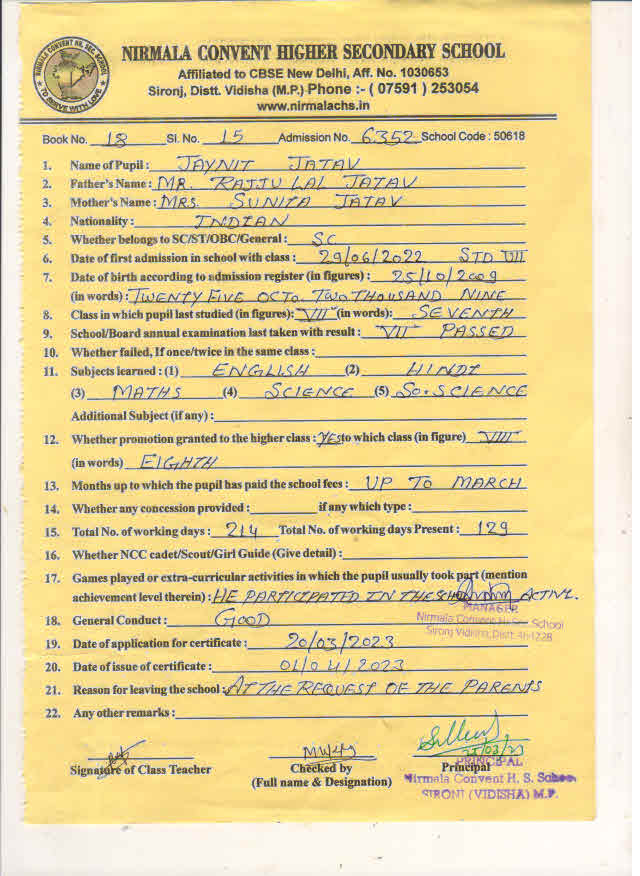 NIRMALA CONVENT HR. SEC. SCHOOL
TO SERVE WITH LOVE
NIRMALA CONVENT HIGHER SECONDARY SCHOOL
Affiliated to CBSE New Delhi, Aff. No. 1030653
Sironj, Distt. Vidisha (M.P.) Phone :- ( 07591 ) 253054
www.nirmalachs.in
Book No. 18 Sl. No. 15 Admission No. 6352 School Code : 50618
1. Name of Pupil : JAYNIT JATAV
2. Father's Name : MR. RAJJU LAL JATAV
3. Mother's Name : MRS. SUNITA JATAV
4. Nationality : INDIAN
5. Whether belongs to SC/ST/OBC/General : SC
6. Date of first admission in school with class : 29/06/2022 STD VII
7. Date of birth according to admission register (in figures) : 25/10/2009
(in words) : TWENTY FIVE OCTO. TWO THOUSAND NINE
8. Class in which pupil last studied (in figures): VII (in words): SEVENTH
9. School/Board annual examination last taken with result : VII PASSED
10. Whether failed, If once/twice in the same class :
11. Subjects learned : (1) ENGLISH (2) HINDI
(3) MATHS (4) SCIENCE (5) SO. SCIENCE
Additional Subject (if any) :
12. Whether promotion granted to the higher class : YES to which class (in figure) VIII
(in words) EIGHTH
13. Months up to which the pupil has paid the school fees : UP TO MARCH
14. Whether any concession provided : if any which type :
15. Total No. of working days : 214 Total No. of working days Present : 129
16. Whether NCC cadet/Scout/Girl Guide (Give detail) :
17. Games played or extra-curricular activities in which the pupil usually took part (mention
achievement level therein) : HE PARTICIPATED IN THE SCHOOL ACTIVE.
MANAGER
18. General Conduct : GOOD
Nirmala Convent H. Sec. School
Sironj Vidisha, Distt. 464228
19. Date of application for certificate : 20/03/2023
20. Date of issue of certificate : 01/04/2023
21. Reason for leaving the school : AT THE REQUEST OF THE PARENTS
22. Any other remarks :
Signature of Class Teacher
Checked by
(Full name & Designation)
Principal
PRINCIPAL
Nirmala Convent H. S. School
SIRONJ (VIDISHA) M.P.